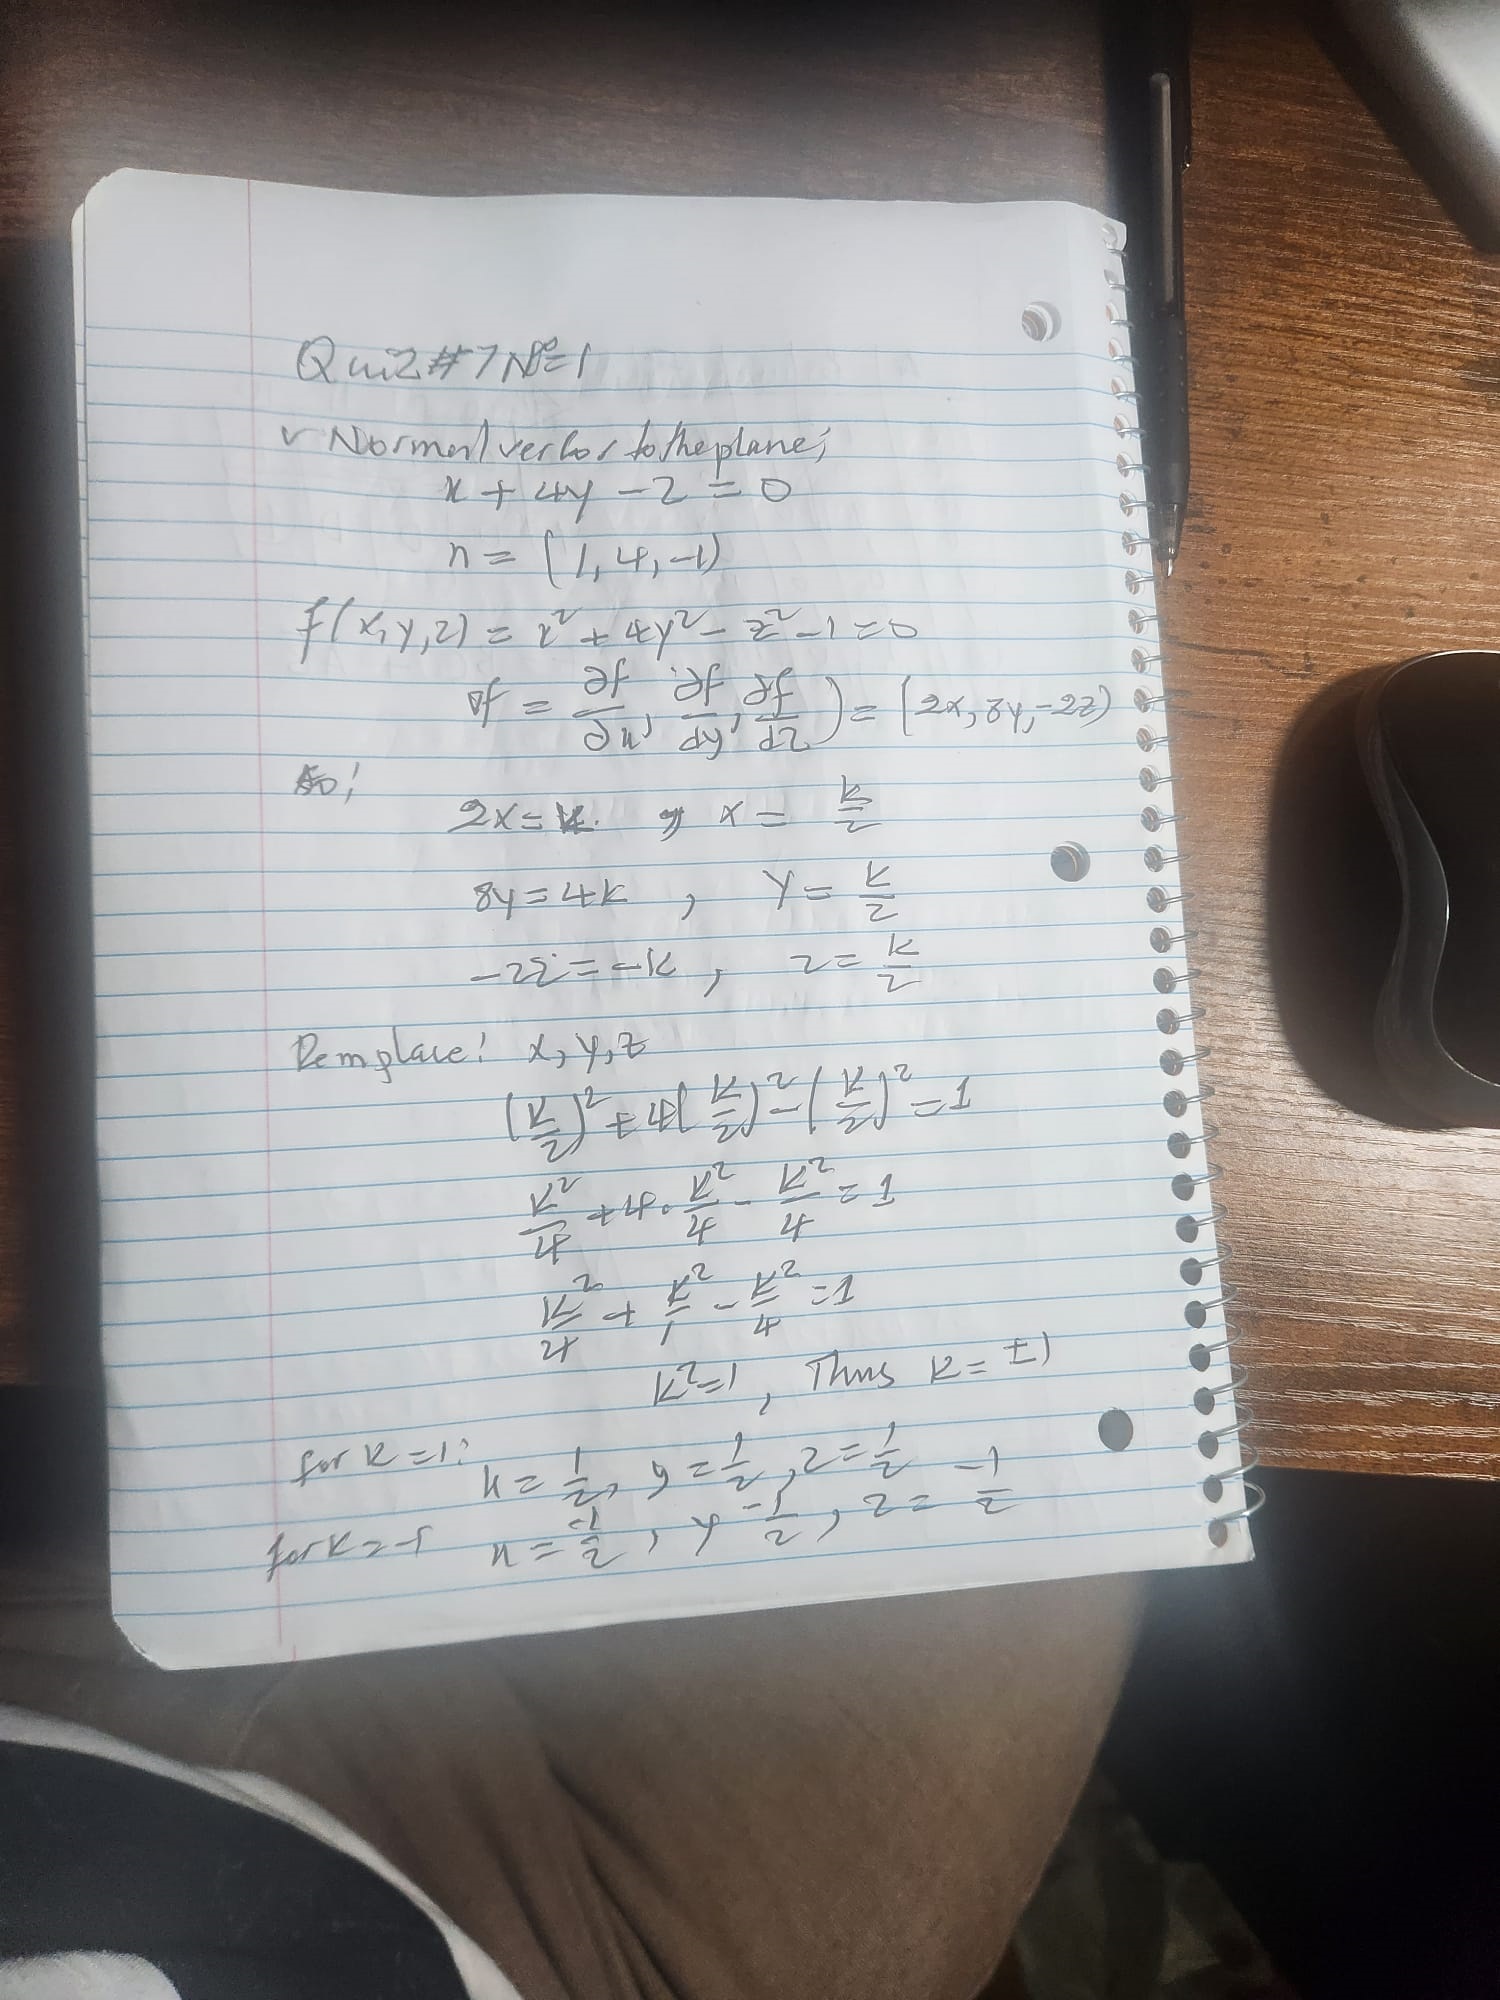 Quiz #7 Nº=1
Normal vector to the plane;
x + 4y - z = 0
n = (1, 4, -1)
f(x, y, z) = x² + 4y² - z² - 1 = 0
∇f = ∂f/∂x, ∂f/∂y, ∂f/∂z) = (2x, 8y, -2z)
so;
2x = k. x = k/2
8y = 4k , y = k/2
-2z = -k , z = k/2
Remplace: x, y, z
(k/2)² + 4(k/2)² - (k/2)² = 1
k²/4 + 4 · k²/4 - k²/4 = 1
k²/4 + k²/1 - k²/4 = 1
k² = 1 , Thus k = ±1
for k = 1: x = 1/2, y = 1/2, z = 1/2
for k = -1 x = -1/2, y -1/2, z = -1/2